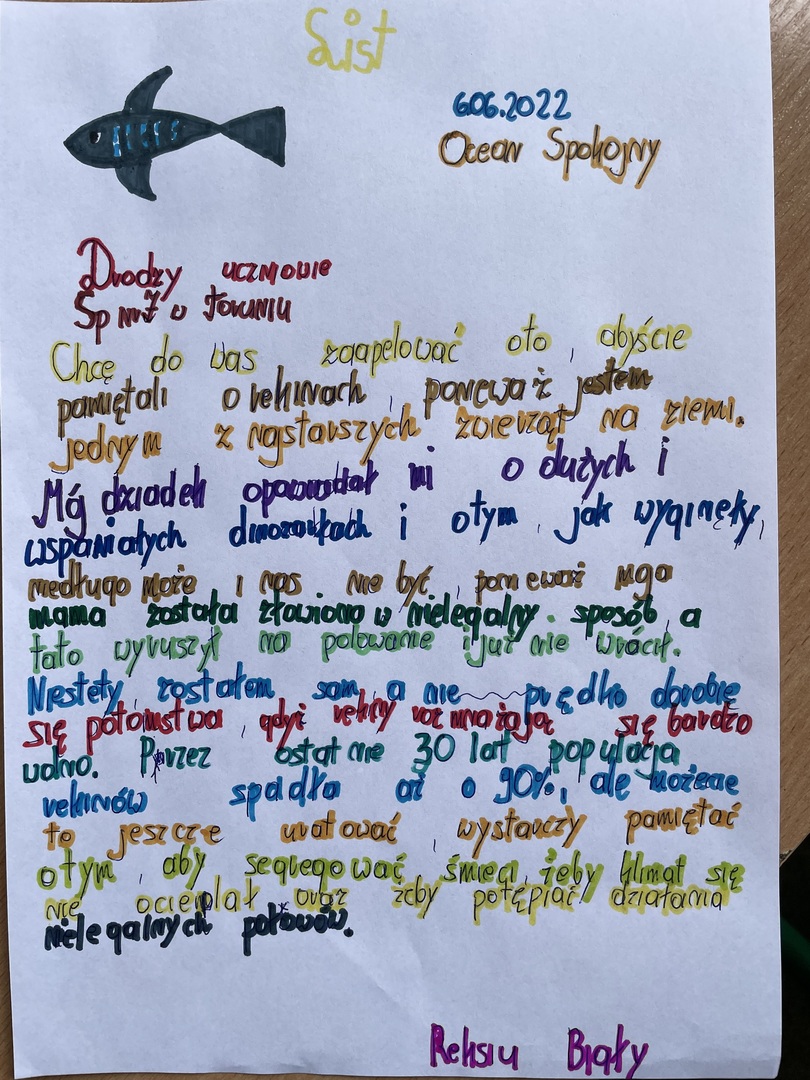 List
6.06.2022
Ocean Spokojny
Drodzy uczniowie
Sp nr 7 w Toruniu
Chcę do was zaapelować oto, abyście
pamiętali o rekinach, ponieważ jestem
jednym z najstarszych zwierząt na ziemi.
Mój dziadek opowiadał mi o dużych i
wspaniałych dinozaurkach i otym, jak wyginęły,
niedługo może i nas nie być, ponieważ moja
mama została złowiona w nielegalny. sposób, a
tato wyruszył na polowanie i już nie wrócił.
Niestety, zostałem sam, a nie prędko dorobię
się potomstwa, gdyż rekiny rozmnażają się bardzo
wolno. Przez ostatnie 30 lat populacja
rekinów spadła aż o 90%, ale możecie
to jeszcze uratować, wystarczy pamiętać
otym, aby segregować śmieci, żeby klimat się
nie ocieplał oraz żeby potępiać działania
nielegalnych połowów.
Reksiu Biały